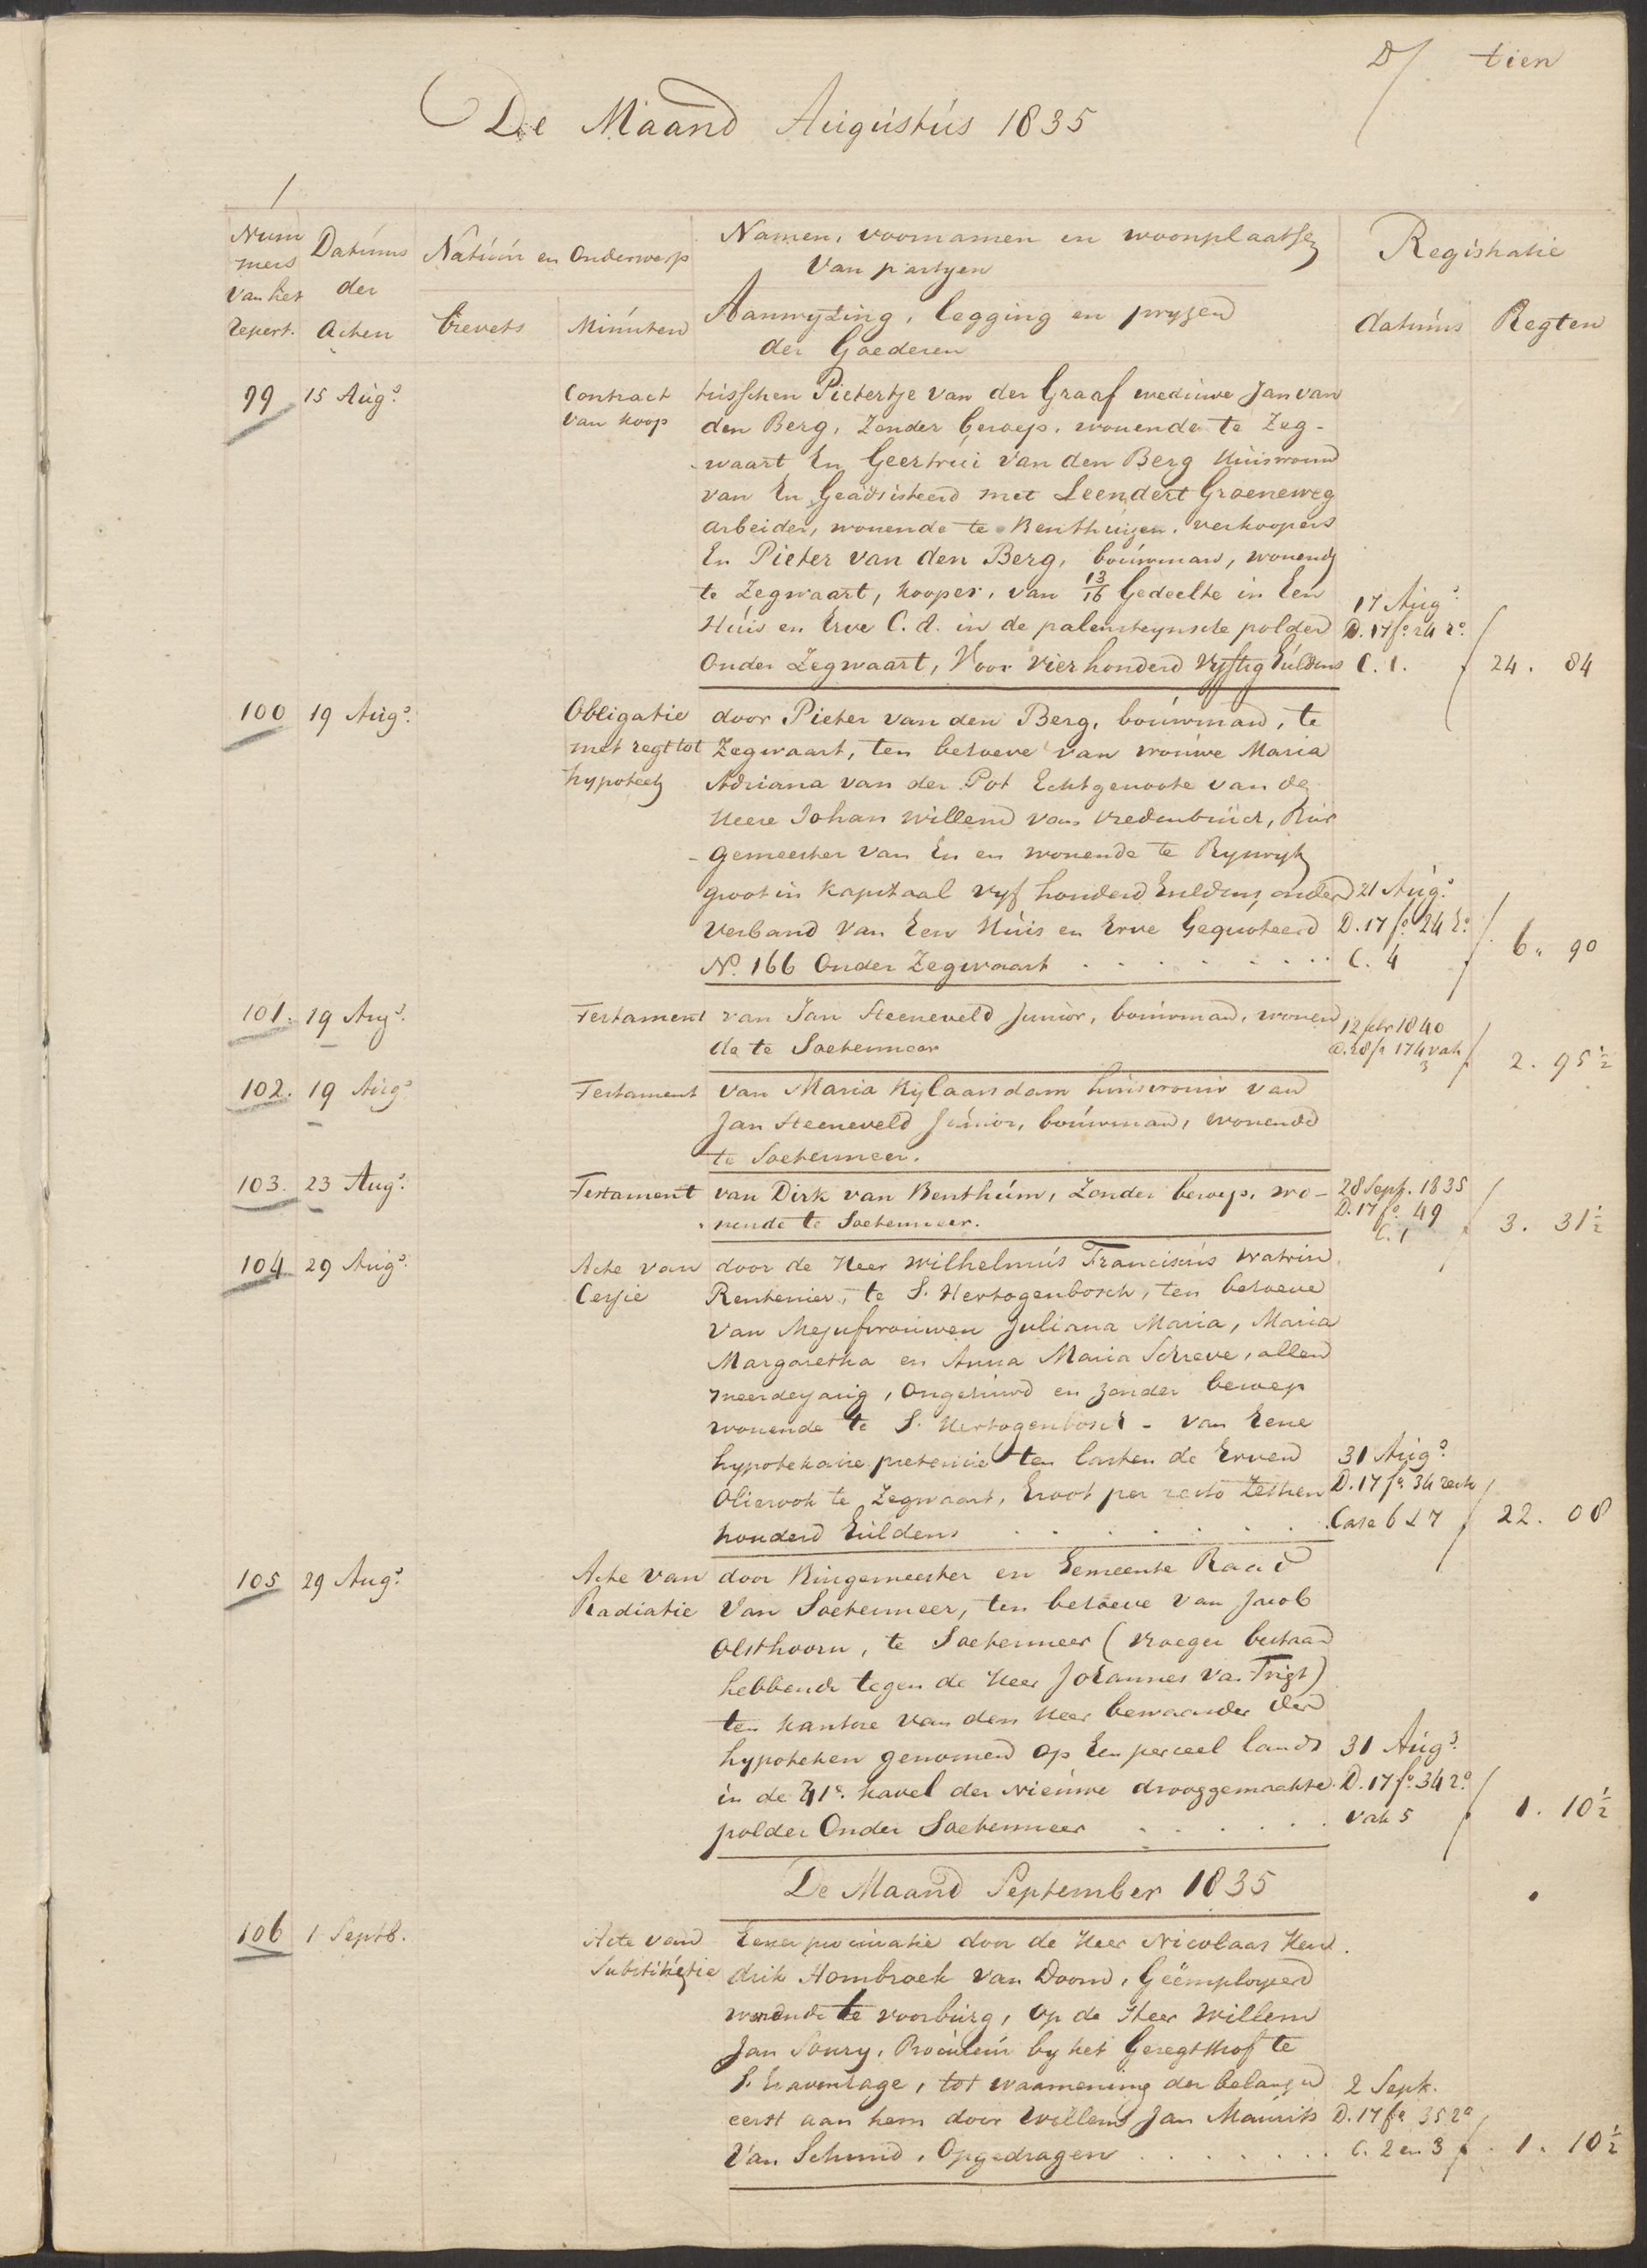 D/ tien
De Maand Augustus 1835
Num
mers
van het
repert.
Datums
der
Acten
Natuur en Onderwerp
brevets
Minuten
Namen, voornamen en woonplaatsen
van partyen
Aanwyzing, legging en pryzen
der Goederen
Registratie
datums
Regten
99 15 Augs. Contract tusschen Pietertje van der Graaf weduwe Jan van
van koop den Berg, zonder beroep, wonende te Zeg-
waart En Geertrui van den Berg Huisvrouw
van En Geädsisteerd met Leendert Groeneweg
arbeider, wonende te Benthuizen, verkoopers
En Pieter van den Berg, bouwman, wonend
te Zegwaart, kooper, van 13/16 Gedeelte in Een
17 Augs.
Huis en Erve C. A. in de palensteynsche polder D. 17 fo. 24 ro.
Onder Zegwaart, Voor vierhonderd vyftig Guldens C. 1. 24. 84
100 19 Augs. Obligatie door Pieter van den Berg, bouwman, te
met regt tot Zegwaart, ten behoeve van vrouwe Maria
hypotheek Adriana van der Pot Echtgenoote van de
Heere Johan Willem van Vredenburch, Bur
-gemeester van En en wonende te Ryswyk
groot in kapitaal vyf honderd Guldens onder 21 Augs.
verband van Een Huis en Erve Gequoteerd D. 17 fo. 24
No. 166 Onder Zegwaart C. 4 6. 90
101. 19 Augs. Testament van Jan Steeneveld Junior, bouwman, wonen 12 febr 1840
de te Soetermeer D. 28 fo 174 vak 3 2. 95 1/2
102. 19 Augs. Testament van Maria Hylaardam huisvrouw van
Jan Steeneveld Junior, bouwman, wonende
te Soetermeer.
103. 23 Augs. Testament van Dirk van Benthem, zonder beroep, wo- 28 Sept. 1835
nende te Soetermeer. D. 17 fo. 49
C. 1 3. 31 1/2
104 29 Augs. Acte van door de Heer Wilhelmus Franciscus Watrin
Cessie Rentenier, te S. Hertogenbosch, ten behoeve
van Mejufvrouwen Juliana Maria, Maria
Margaretha en Anna Maria Schreve, allen
meerderjarig, ongehuwd en zonder beroep
wonende te S. Hertogenbosch - van Eene
hypothekaire pretensie ten lasten de Erven 31 Augs.
Olierook te Zegwaart, Groot per resto Zestien D. 17 fo. 34 recto
honderd Guldens Case 6 & 7 22. 08
105 29 Augs. Acte van door Burgemeester en Gemeente Raad
Radiatie van Soetermeer, ten behoeve van Jacob
Olsthoorn, te Soetermeer (vroeger bestaan
hebbende tegen de Heer Johannes van Trigt)
ten kantore van den Heer bewaarder der
hypotheken genomen op Een perceel lands 31 Augs.
in de 41e. kavel der Nieuwe drooggemaakte D. 17 fo. 34 ro.
polder Onder Soetermeer vak 5 1. 10 1/2
De Maand September 1835
106 1 Septb. Acte van Eener procuratie door de Heer Nicolaas Hen
Substitutie drik Hambroek van Doorn, Geëmployeerd
wonende te voorburg, op de Heer Willem
Jan Soury, Procureur by het Geregtshof te
S. Gravenhage, tot waarneming der belangen 2 Sept.
eerst aan hem door Willem Jan Maurits D. 17 fo 35 ro
van Schmid, Opgedragen C. 2 en 3 1. 10 1/2